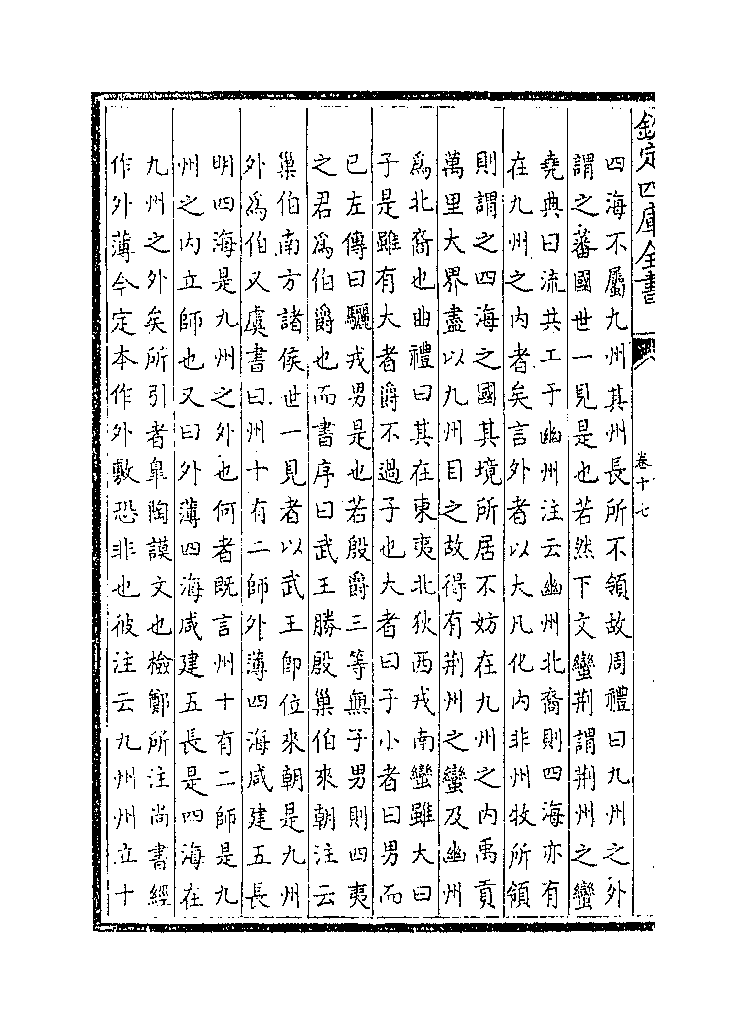 欽定四庫全書
卷十七
四海不屬九州其州長所不領故周禮曰九州之外
謂之蕃國世一見是也若然下文蠻荆謂荆州之蠻
堯典曰流共工于幽州注云幽州北裔則四海亦有
在九州之内者矣言外者以大凡化内非州牧所領
則謂之四海之國其境所居不妨在九州之内禹貢
萬里大界盡以九州目之故得有荆州之蠻及幽州
爲北裔也曲禮曰其在東夷北狄西戎南蠻雖大曰
子是雖有大者爵不過子也大者曰子小者曰男而
已左傳曰驪戎男是也若殷爵三等無子男則四夷
之君爲伯爵也而書序曰武王勝殷巢伯來朝注云
巢伯南方諸侯世一見者以武王卽位來朝是九州
外爲伯又虞書曰州十有二師外薄四海咸建五長
明四海是九州之外也何者既言州十有二師是九
州之内立師也又曰外薄四海咸建五長是四海在
九州之外矣所引者臯陶謨文也檢鄭所注尚書經
作外薄今定本作外敷恐非也彼注云九州州立十